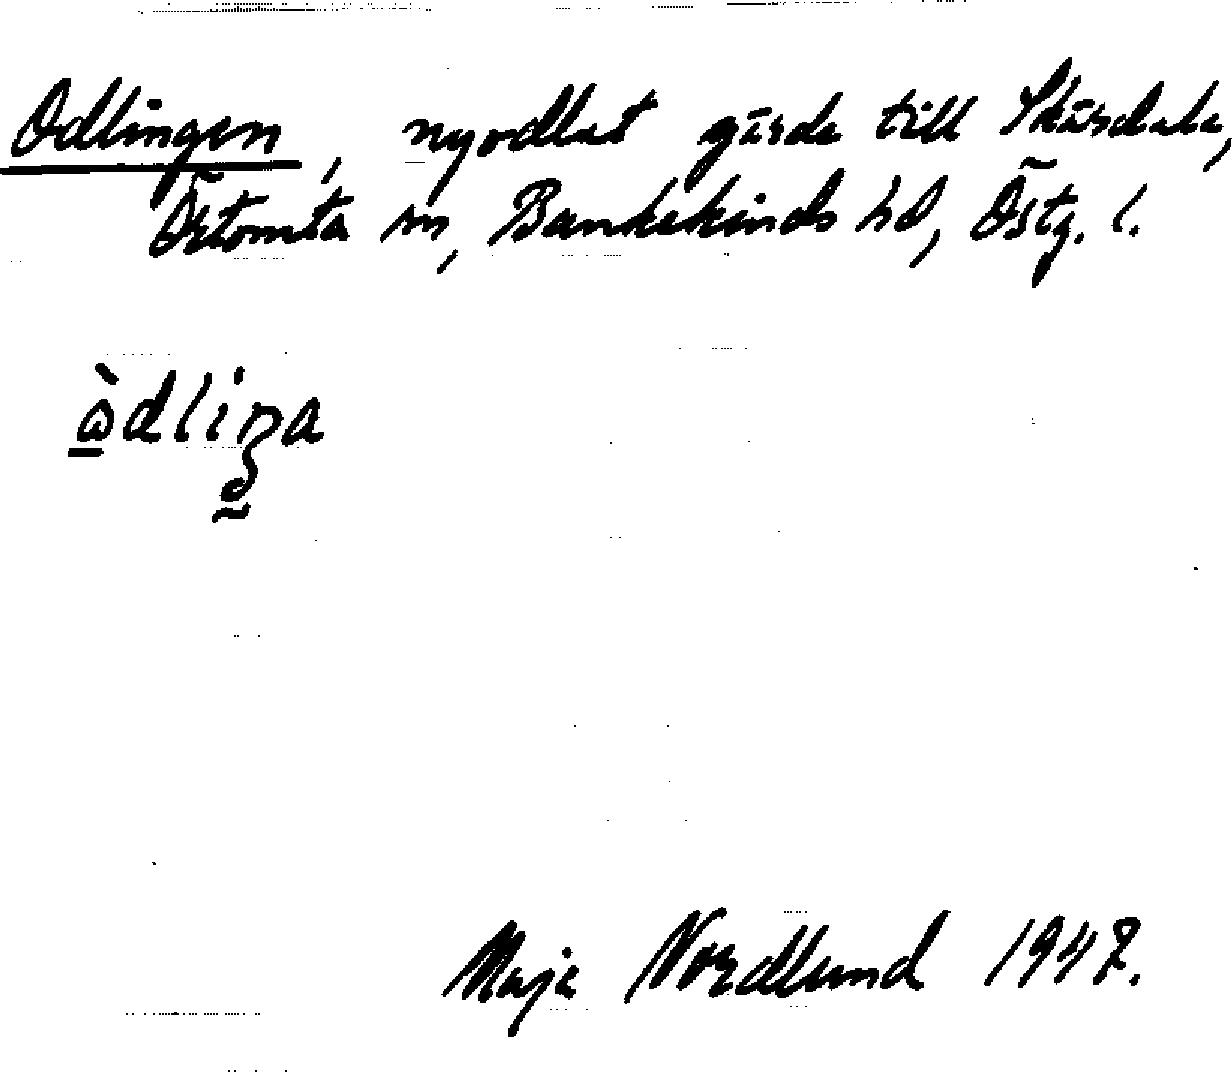 Odlingen, nyodlat gärde till Skärsdala,
Örtomta sn, Bankekinds hd, Östg. l.
Maja Nordlund 1947.